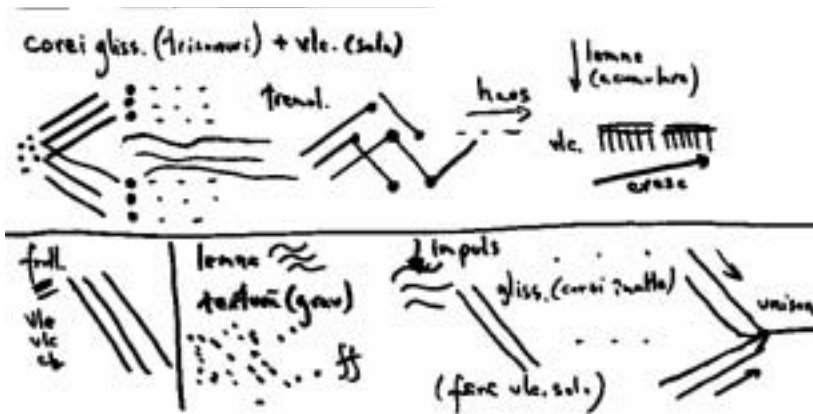 corzi gliss. (trisonuri) + vlc. (solo)
tremol.
haos
lemne
(acumulare)
vlc.
cresc
frull.
vle
vlc
cb
lemne
(grav)
ff
impuls
gliss. (corzi
(fără vlc. solo)
unison